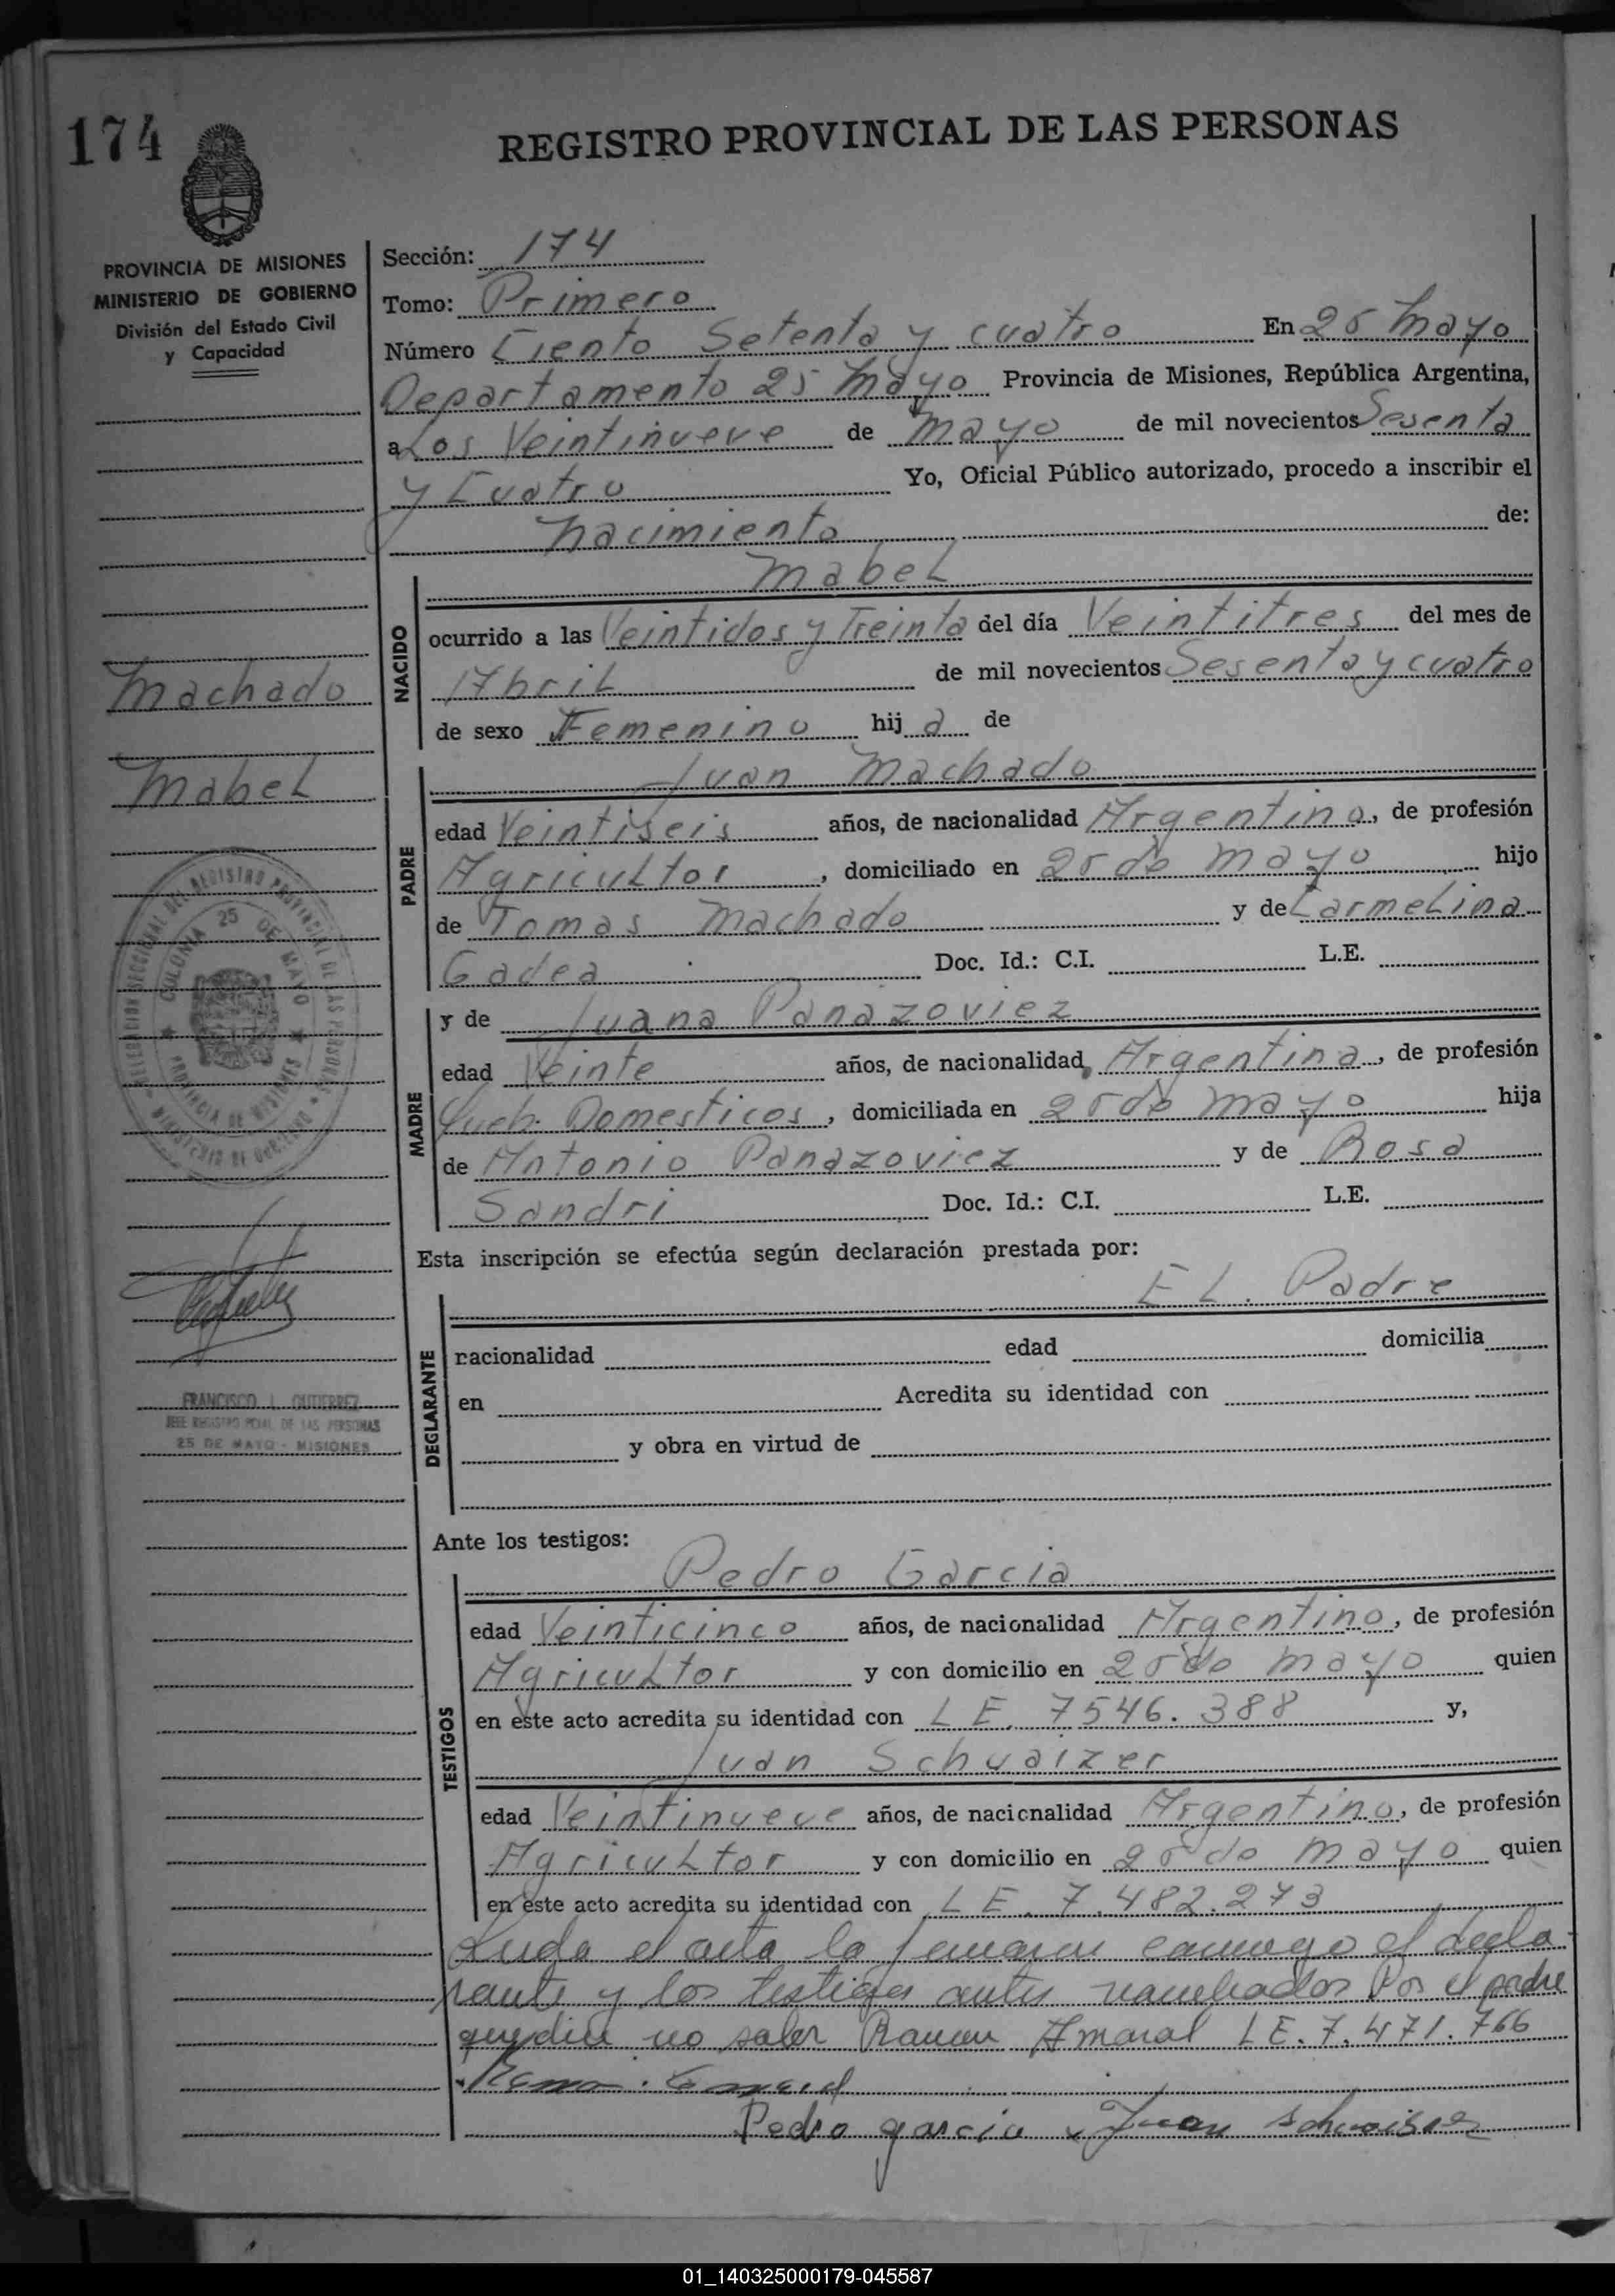 174
REGISTRO PROVINCIAL DE LAS PERSONAS
PROVINCIA DE MISIONES
MINISTERIO DE GOBIERNO
División del Estado Civil
y Capacidad
Sección: 174
Tomo: Primero
Número Ciento Setenta y cuatro En 25 Mayo
Departamento 25 Mayo Provincia de Misiones, República Argentina,
a Los Veintinueve de Mayo de mil novecientos Sesenta
y Cuatro Yo, Oficial Público autorizado, procedo a inscribir el
Nacimiento de:
Mabel
NACIDO
ocurrido a las Veintidos y Treinta del día Veintitres del mes de
Abril de mil novecientos Sesenta y cuatro
de sexo Femenino hij a de
Machado
Mabel
Juan Machado
PADRE
edad Veintiseis años, de nacionalidad Argentino, de profesión
Agricultor, domiciliado en 25 de Mayo hijo
de Tomas Machado y de Carmelina
Gadea Doc. Id.: C.I. L.E.
y de Juana Panazoviez
MADRE
edad Veinte años, de nacionalidad Argentina, de profesión
Domesticos, domiciliada en 25 de Mayo hija
de Antonio Panazoviez y de Rosa
Sandri Doc. Id.: C.I. L.E.
DELEGACION SECCIONAL DEL REGISTRO PROVINCIAL DE LAS PERSONAS
COLONIA 25 DE MAYO
PROVINCIA DE MISIONES
MINISTERIO DE GOBIERNO
Esta inscripción se efectúa según declaración prestada por:
EL. Padre
DECLARANTE
nacionalidad edad domicilia
en Acredita su identidad con
y obra en virtud de
FRANCISCO L. GUTIERREZ
JEFE REGISTRO PCIAL DE LAS PERSONAS
25 DE MAYO - MISIONES
Ante los testigos:
Pedro Garcia
TESTIGOS
edad Veinticinco años, de nacionalidad Argentino, de profesión
Agricultor y con domicilio en 25 de Mayo quien
en este acto acredita su identidad con LE. 7546.388 y,
Juan Schvaizer
edad Veintinueve años, de nacionalidad Argentino, de profesión
Agricultor y con domicilio en 25 de Mayo quien
en este acto acredita su identidad con LE. 7.482.273
Leida el acta la firman conmigo el decla-
rante y los testigos antes nombrados Por el padre
que dice no saber Ramon Amaral LE. 7.471.766
Pedro garcia Juan
01_140325000179-045587